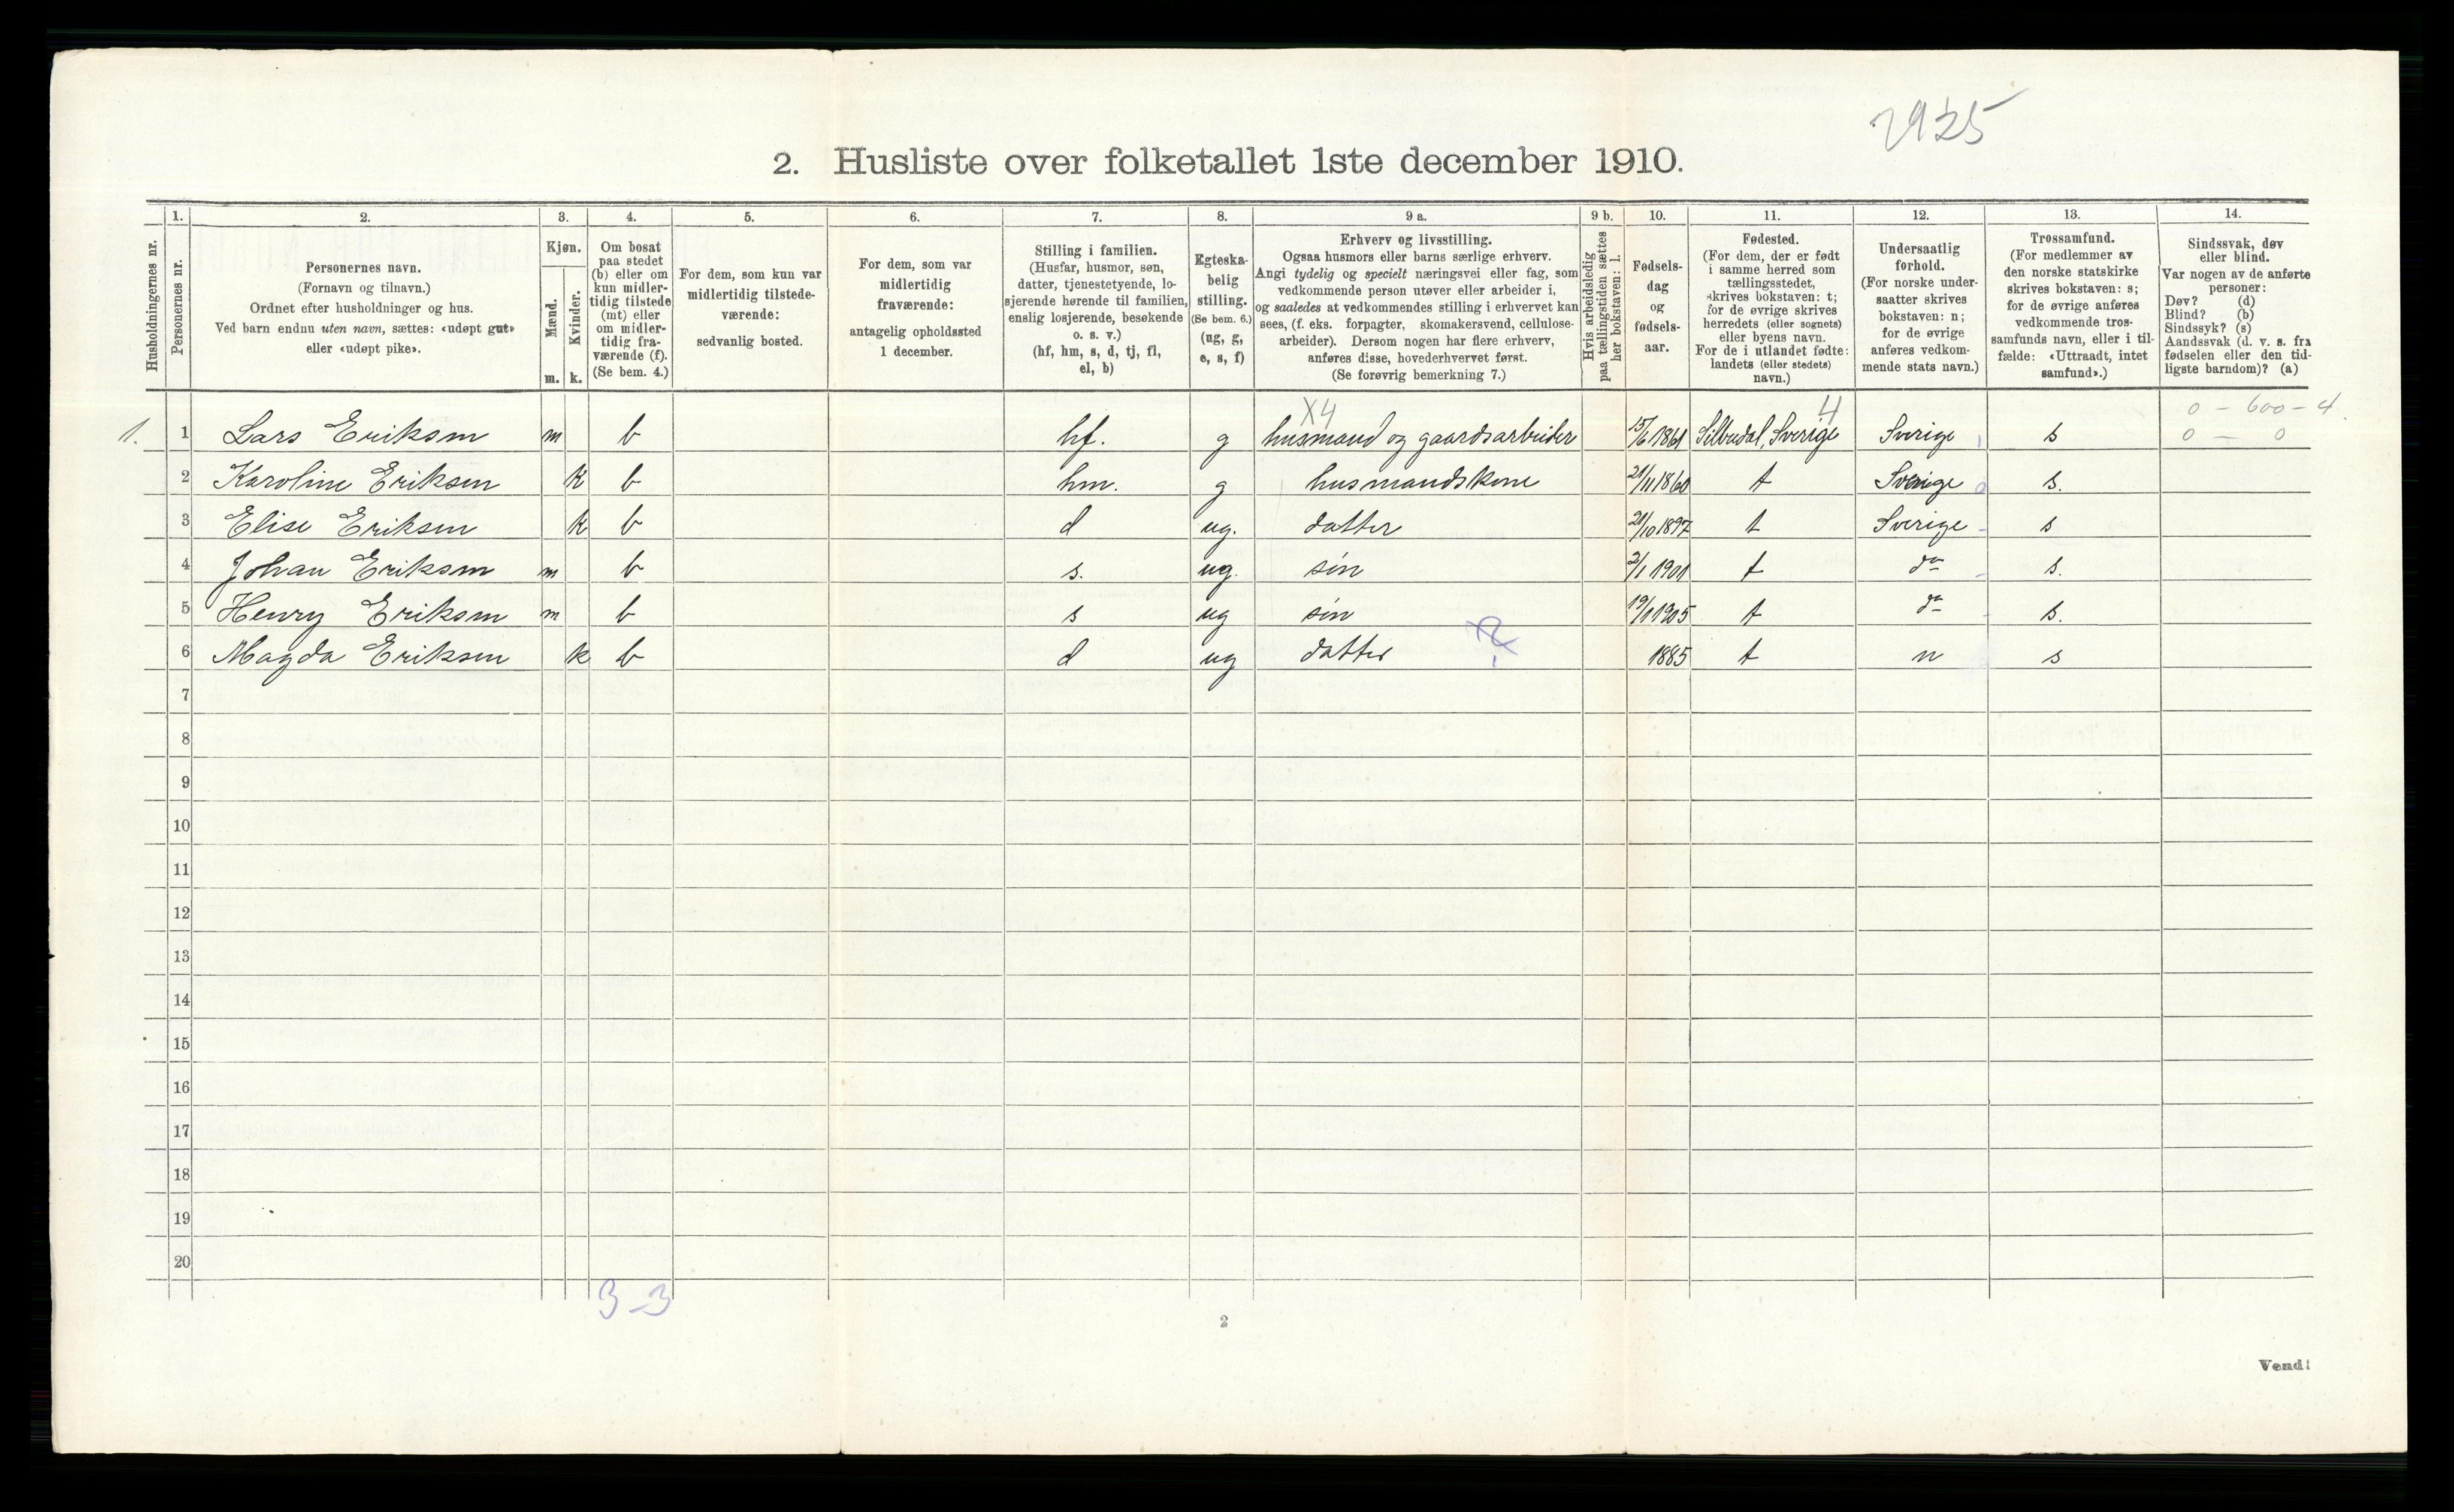 2925
2. Husliste over folketallet 1ste december 1910.
1. 2. 3. 4. 5. 6. 7. 8. 9 a. 9 b. 10. 11. 12. 13. 14.
Husholdningernes nr.
Personernes nr.
Personernes navn.
(Fornavn og tilnavn.)
Ordnet efter husholdninger og hus.
Ved barn endnu uten navn, sættes: «udøpt gut»
eller «udøpt pike».
Kjøn.
Mænd.
Kvinder.
m. k.
Om bosat
paa stedet
(b) eller om
kun midler-
tidig tilstede
(mt) eller
om midler-
tidig fra-
værende (f).
(Se bem. 4.)
For dem, som kun var
midlertidig tilstede-
værende:
sedvanlig bosted.
For dem, som var
midlertidig
fraværende:
antagelig opholdssted
1 december.
Stilling i familien.
(Husfar, husmor, søn,
datter, tjenestetyende, lo-
sjerende hørende til familien,
enslig losjerende, besøkende
o. s. v.)
(hf, hm, s, d, tj, fl,
el, b)
Egteska-
belig
stilling.
(Se bem. 6.)
(ug, g,
e, s, f)
Erhverv og livsstilling.
Ogsaa husmors eller barns særlige erhverv.
Angi tydelig og specielt næringsvei eller fag, som
vedkommende person utøver eller arbeider i,
og saaledes at vedkommendes stilling i erhvervet kan
sees, (f. eks. forpagter, skomakersvend, cellulose-
arbeider). Dersom nogen har flere erhverv,
anføres disse, hovederhvervet først.
(Se forøvrig bemerkning 7.)
Hvis arbeidsledig
paa tællingstiden sættes
her bokstaven: l.
Fødsels-
dag
og
fødsels-
aar.
Fødested.
(For dem, der er født
i samme herred som
tællingsstedet,
skrives bokstaven: t;
for de øvrige skrives
herredets (eller sognets)
eller byens navn.
For de i utlandet fødte:
landets (eller stedets)
navn.)
Undersaatlig
forhold.
(For norske under-
saatter skrives
bokstaven: n;
for de øvrige
anføres vedkom-
mende stats navn.)
Trossamfund.
(For medlemmer av
den norske statskirke
skrives bokstaven: s;
for de øvrige anføres
vedkommende tros-
samfunds navn, eller i til-
fælde: «Uttraadt, intet
samfund».)
Sindssvak, døv
eller blind.
Var nogen av de anførte
personer:
Døv? (d)
Blind? (b)
Sindssyk? (s)
Aandssvak (d. v. s. fra
fødselen eller den tid-
ligste barndom)? (a)
X4 4 0 - 600 - 4
1. 1 Lars Eriksen m b hf. g husmand og gaardsarbeider 15/6 1861 Silbodal, Sverige Sverige s 0 - 0
2 Karoline Eriksen k b hm. g husmandskone 21/11 1860 t Sverige s.
3 Elise Eriksen k b d ug. datter 21/10 1897 t Sverige s
4 Johan Eriksen m b s. ug. søn 2/1 1901 t do s.
5 Henry Eriksen m b s ug søn 19/1 1905 t do s.
6 Magda Eriksen k b d ug datter 1885 t n s
7
8
9
10
11
12
13
14
15
16
17
18
19
20
3-3
2
Vend!